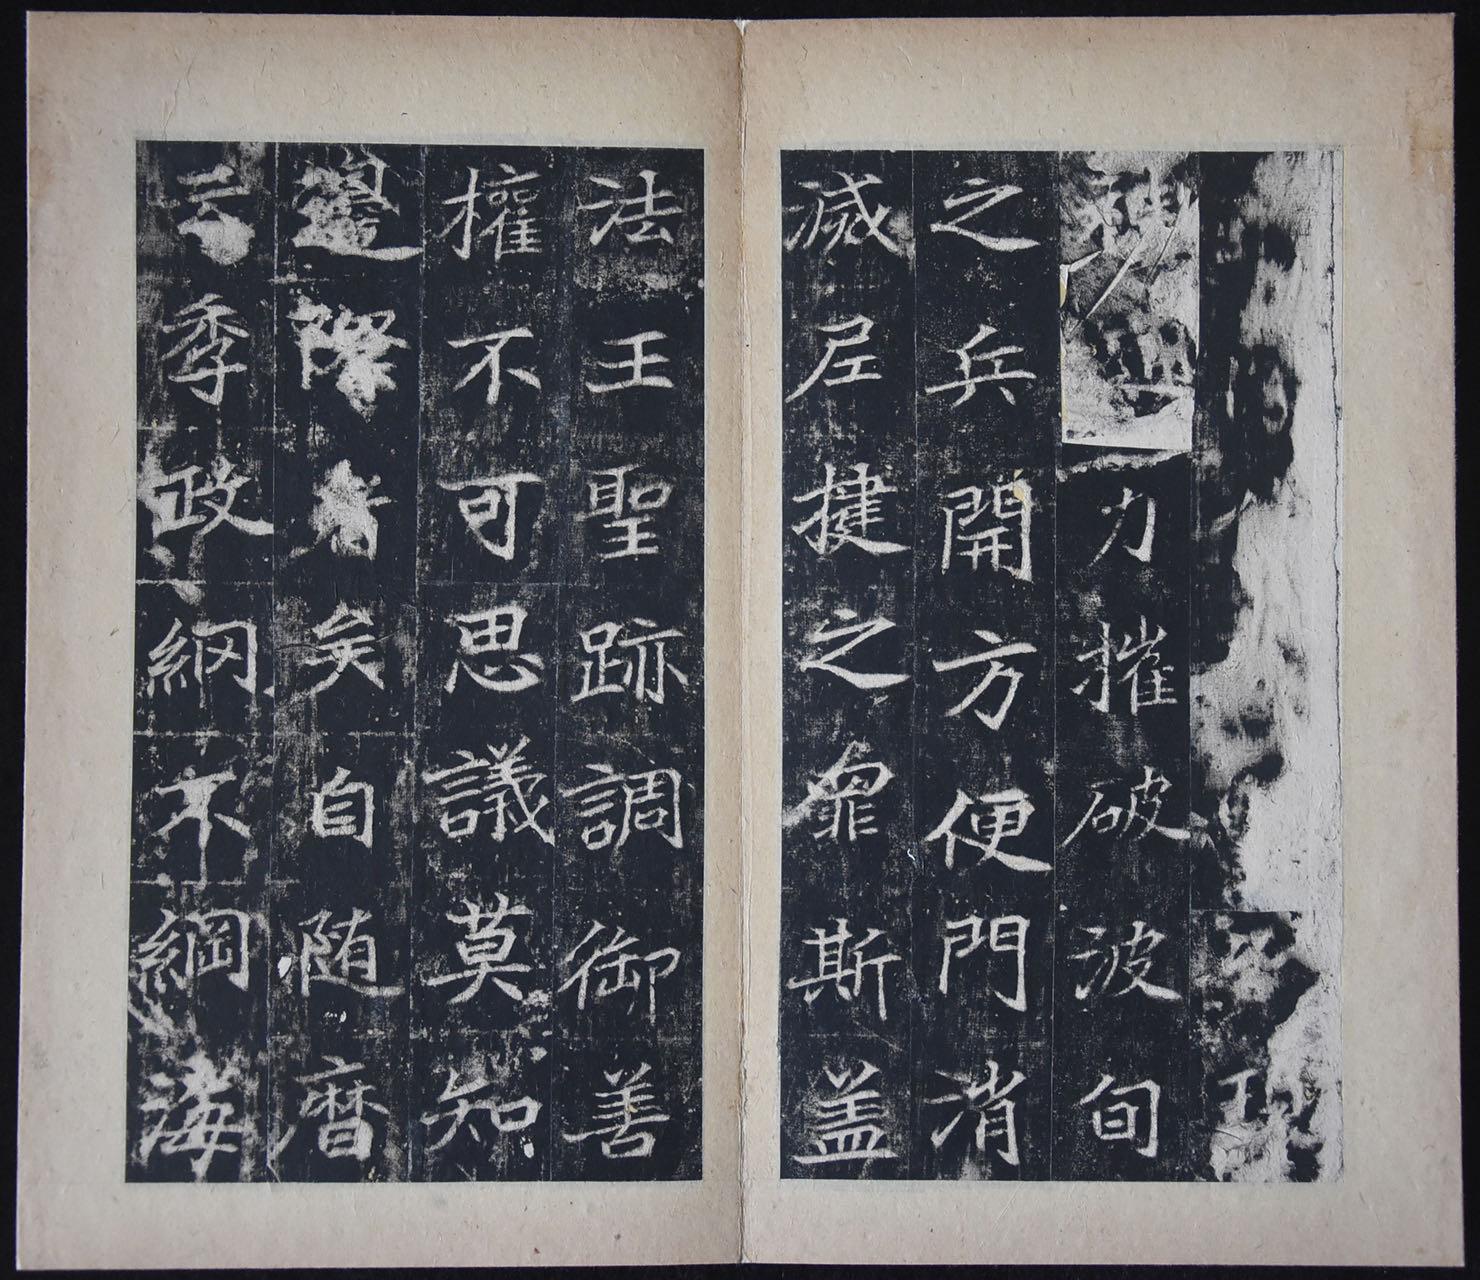 力摧破波旬
之兵開方便門消
滅尼揵之罪斯盖
法王聖跡調御善
權不可思議莫知
邊際者矣自随暦
云季政網不綱海